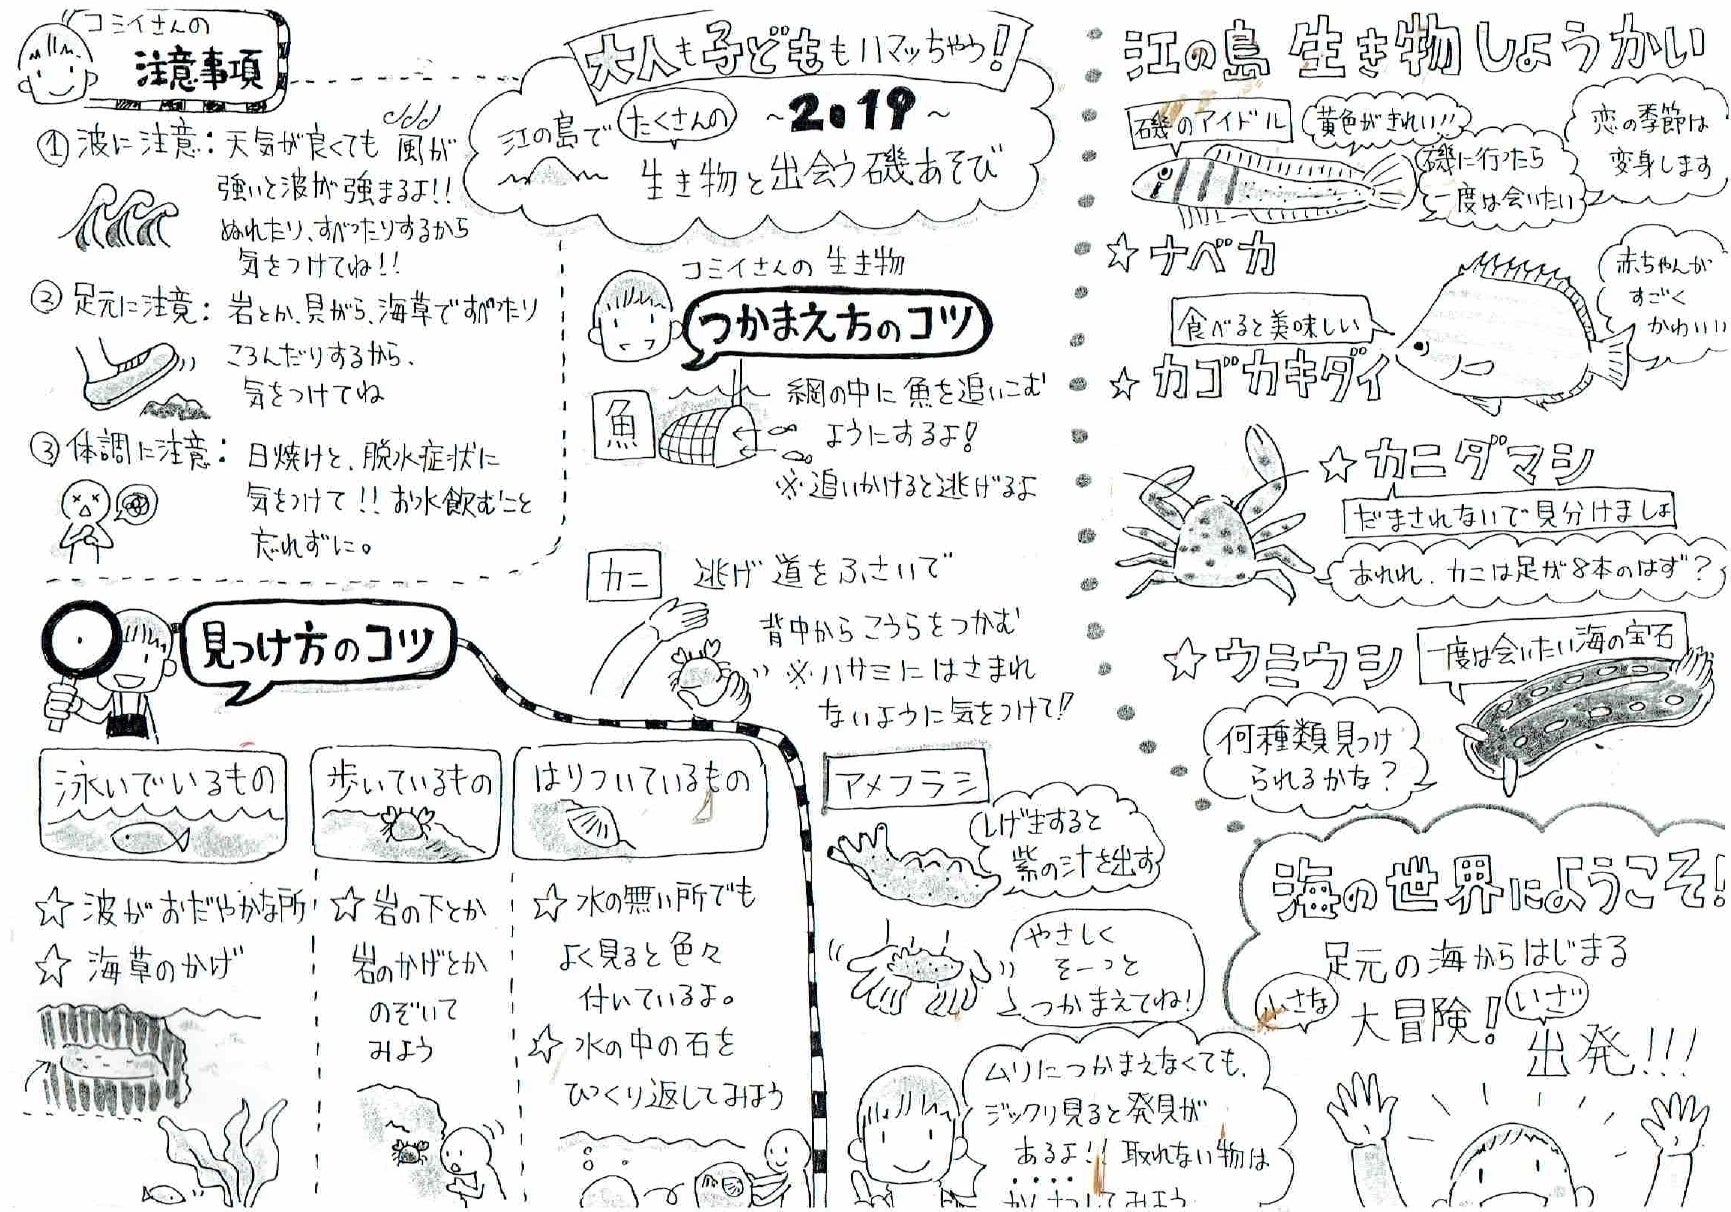 大人も子どももハマッちゃう!
~2019~
江の島で
たくさんの
生き物と出会う磯あそび
コミイさんの
注意事項
① 波に注意:天気が良くても 風が
強いと波が強まるよ!!
ぬれたり、すべったりするから
気をつけてね!!
② 足元に注意:岩とか、貝がら、海草ですべったり
ころんだりするから、
気をつけてね
③ 体調に注意:日焼けと、脱水症状に
気をつけて!!お水飲むこと
忘れずに。
見つけ方のコツ
泳いでいるもの
☆ 波がおだやかな所
☆ 海草のかげ
歩いているもの
☆ 岩の下とか
岩のかげとか
のぞいて
みよう
はりついているもの
☆ 水の無い所でも
よく見ると色々
付いているよ。
☆ 水の中の石を
ひっくり返してみよう
コミイさんの 生き物
つかまえ方のコツ
魚
網の中に魚を追いこむ
ようにするよ!
※追いかけると逃げるよ
カニ
逃げ道をふさいで
背中からこうらをつかむ
※ハサミにはさまれ
ないように気をつけて!!
アメフラシ
しげ生すると
紫の汁を出す
やさしく
そーっと
つかまえてね!
ムリにつかまえなくても、
ジックリ見ると発見が
あるよ!!取れない物は
江の島 生き物しょうかい
磯のアイドル
黄色がきれい!!
磯に行ったら
一度は会いたい
恋の季節は
変身します
☆ ナベカ
食べると美味しい
赤ちゃんが
すごく
かわいい
☆ カゴカキダイ
☆ カニダマシ
だまされないで見分けましょ
あれれ、カニは足が8本のはず?
☆ ウミウシ
一度は会いたい海の宝石
何種類見つけ
られるかな?
海の世界にようこそ!
足元の海からはじまる
小さな
大冒険!
いざ
出発!!!